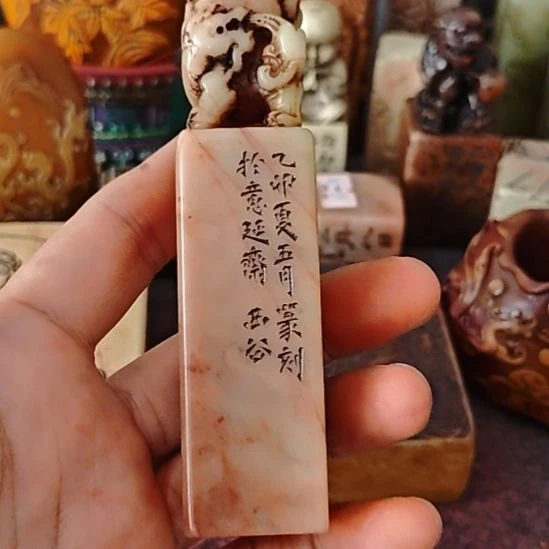 乙卯夏五月篆刻
於意延齋 西谷